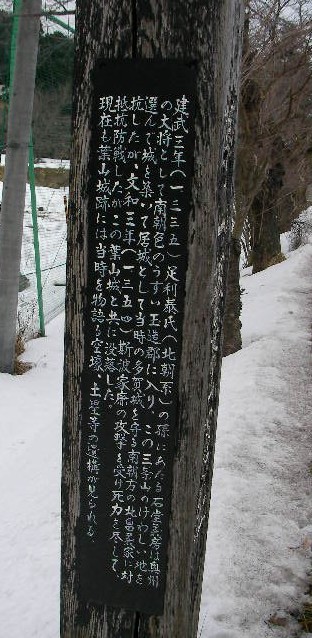 建武三年（一三三五）足利泰氏（北朝系）の孫にあたる石堂義房は奥州
の大将として南朝色のうすい玉造郡に入り、この三条山のけわしい地を
選んで城を築いて居城として当時の多賀城を守る南朝方の北畠顕家に対
抗したが、文和三年（一三五四）斯波家兼の攻撃を受け死力を尽して、
抵抗防戦したがこの葉山城と共に没落した。
現在も葉山城跡には当時を物語る空壕、土塁等の遺構が見られる。